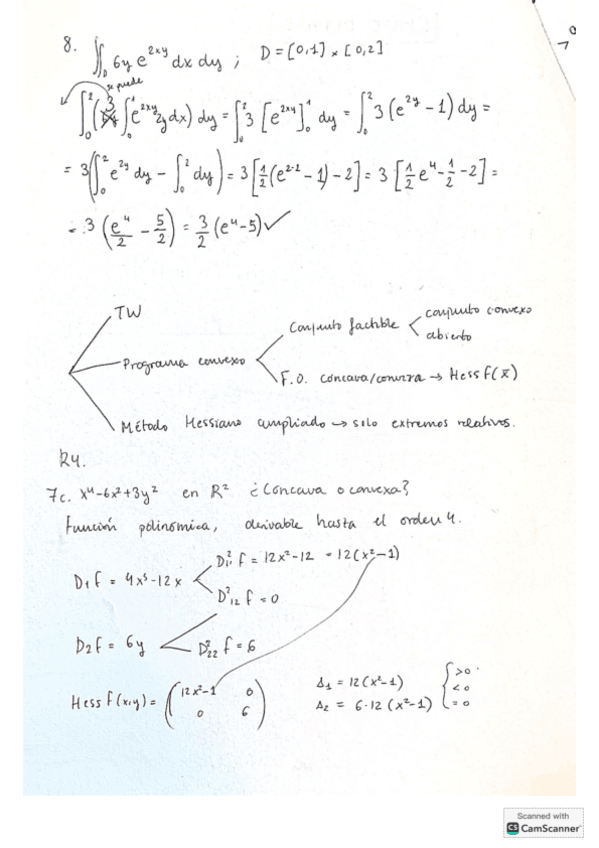 8. ∬_D 6y e^{2xy} dx dy ; D = [0,1] × [0,2]
se puede
∫_0^2 (3 ∫_0^1 e^{2xy} 2y dx) dy = ∫_0^2 3 [e^{2xy}]_0^1 dy = ∫_0^2 3 (e^{2y} - 1) dy =
= 3 (∫_0^2 e^{2y} dy - ∫_0^2 dy) = 3 [1/2 (e^{2·2} - 1) - 2] = 3 [1/2 e^4 - 1/2 - 2] =
= 3 (e^4/2 - 5/2) = 3/2 (e^4 - 5) ✓
TW
Programa convexo
Conjunto factible
conjunto convexo
abierto
F.O. cóncava/convexa → Hess f(x̄)
Método Hessiano ampliado → solo extremos relativos.
R4.
7c. x^4 - 6x^2 + 3y^2 en R^2 ¿Cóncava o convexa?
Función polinómica, derivable hasta el orden 4.
D_1 f = 4x^3 - 12x
D^2_{11} f = 12x^2 - 12 = 12(x^2 - 1)
D^2_{12} f = 0
D_2 f = 6y
D^2_{22} f = 6
Hess f(x,y) = (12x^2-1 0
0 6)
Δ_1 = 12(x^2 - 1)
Δ_2 = 6·12 (x^2 - 1)
{ >0
<0
=0
Scanned with
CS CamScanner